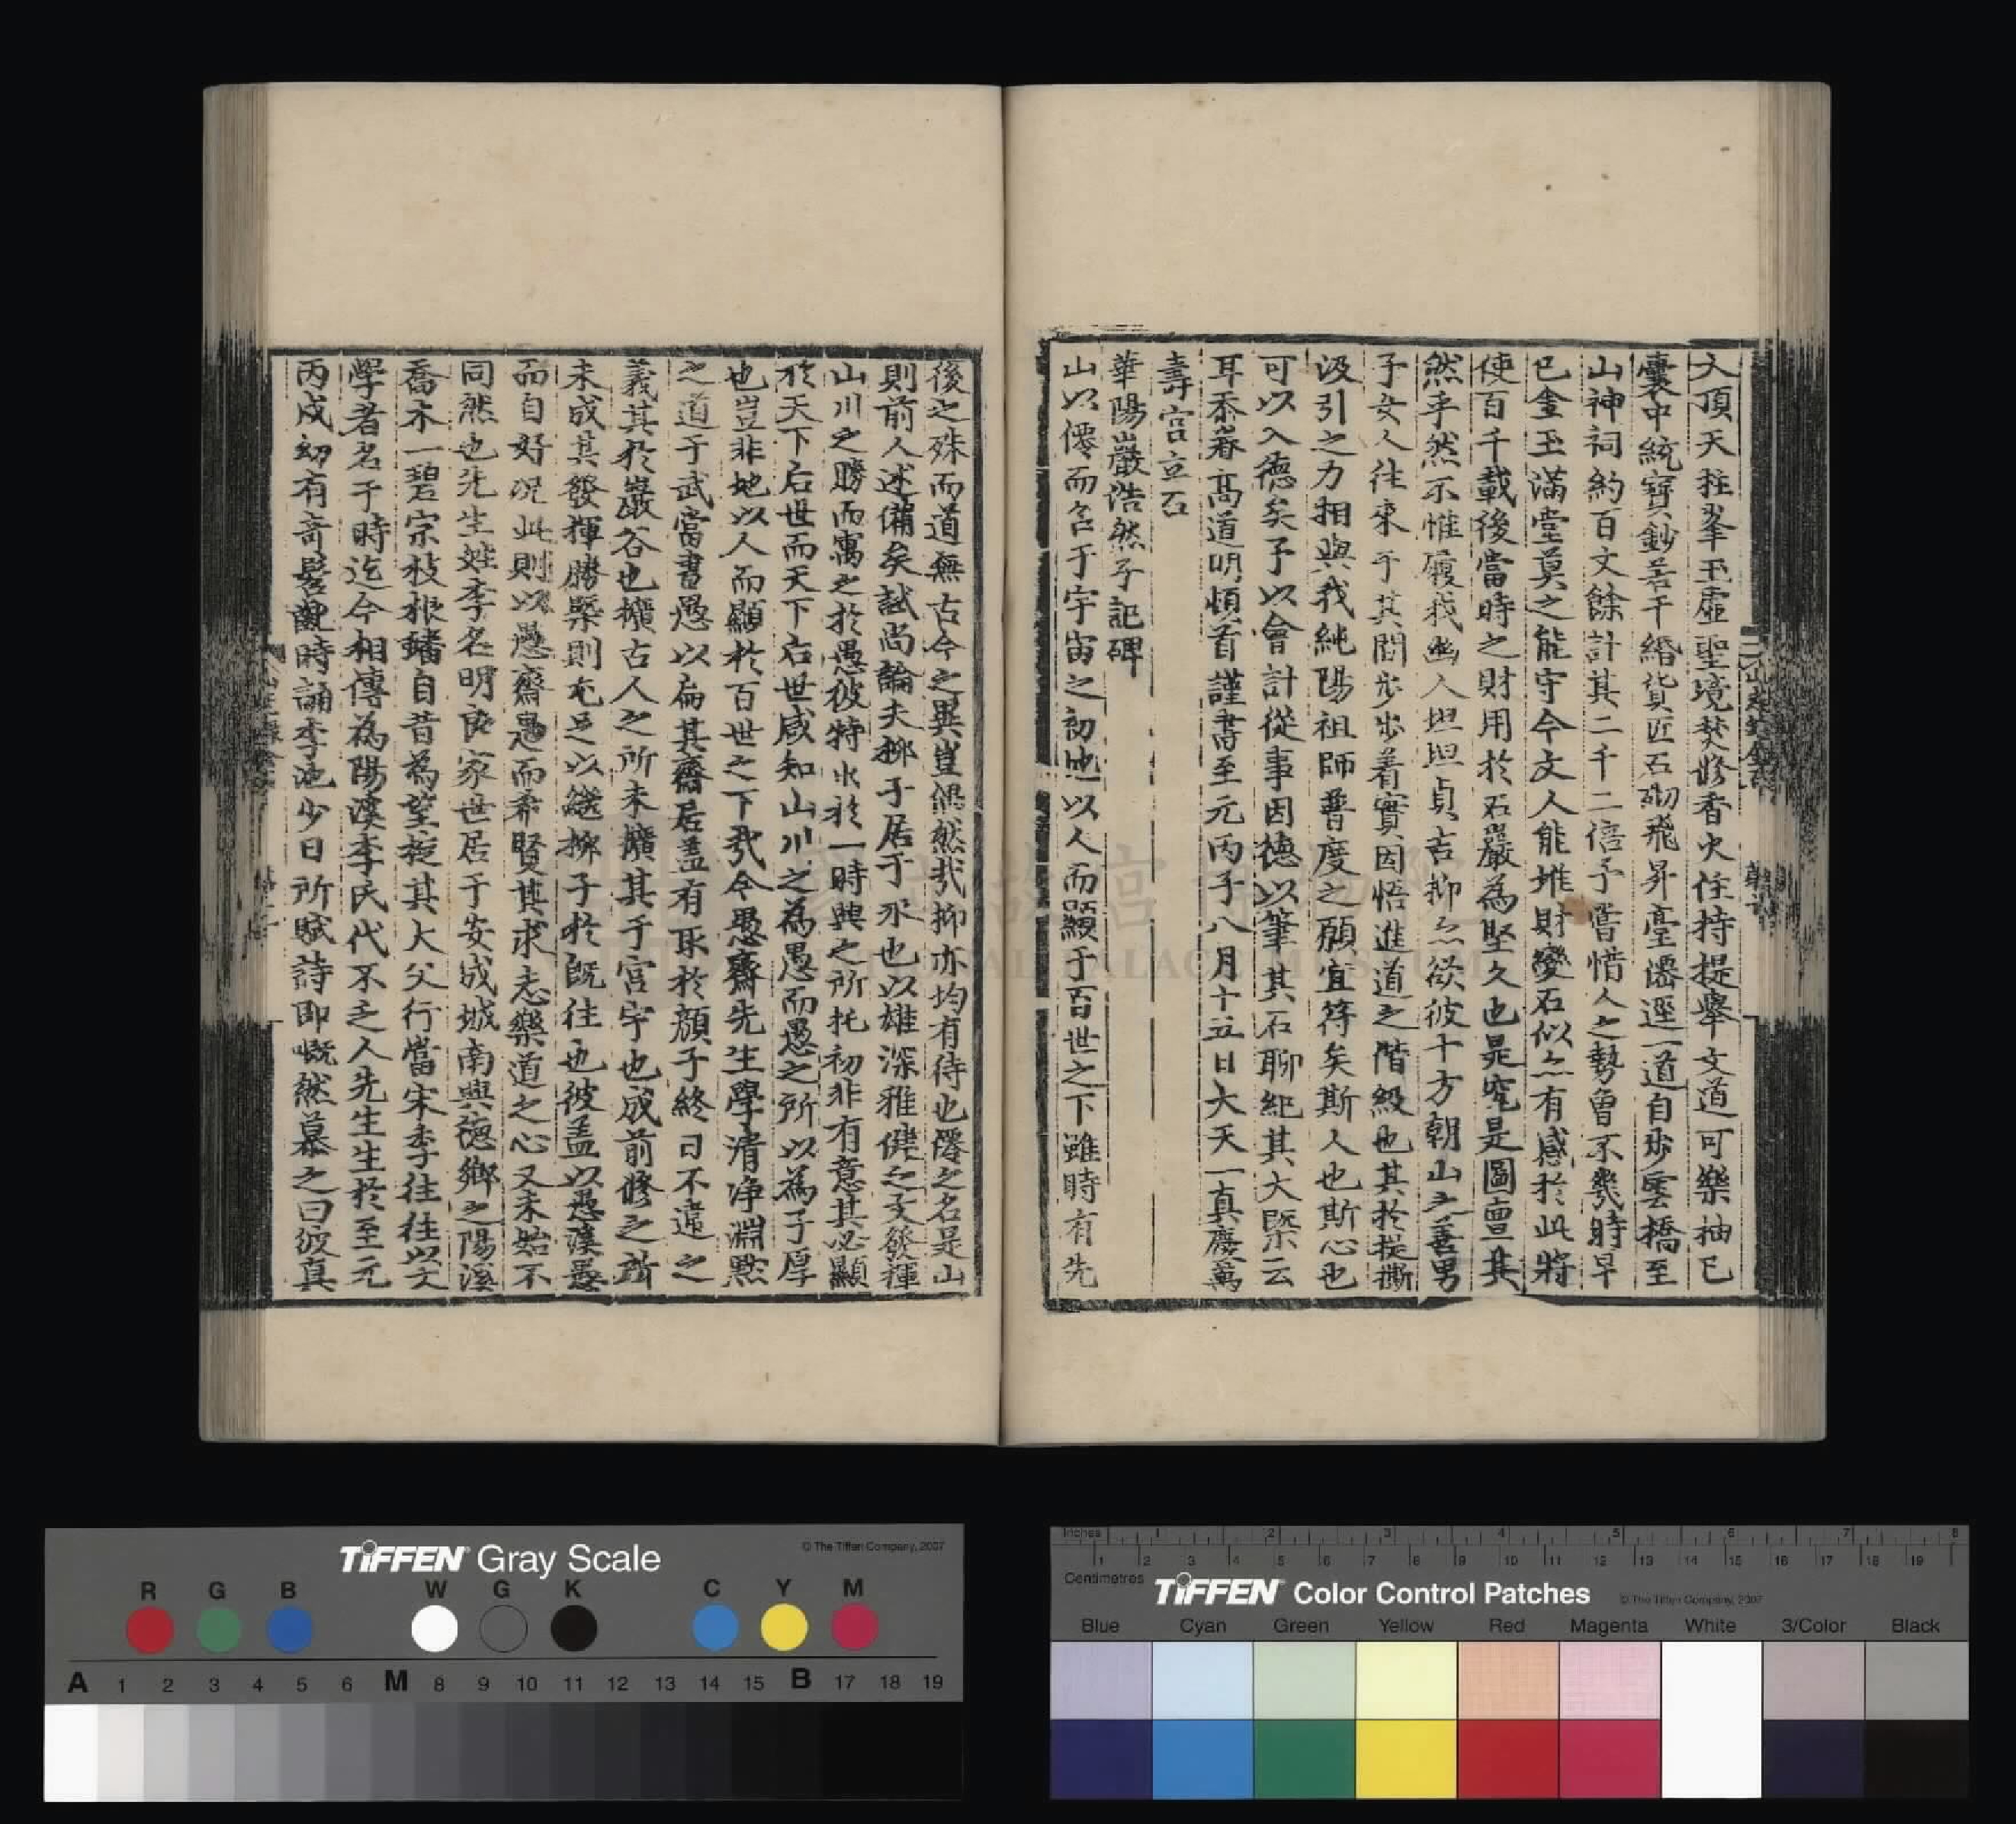 大頂天柱峯玉虛聖境焚修香火住持提舉文道可樂抽已
囊中統寶鈔若千緡貨匠石砌飛昇臺磴逕一道自步雲橋至
山神祠約百丈餘計其二千二倍予嘗惜人之勢曾不幾時早
已金玉滿堂莫之能守今文人能堆財變石似亦有感於此將
使百千載後當時之財用於石巖為堅久也晁究是圖亶其
然乎然不惟履我幽人坦坦貞吉抑亦欲彼十方朝山之善男
子女人往來于其間步步着實因悟進道之階級也其於提撕
汲引之力相與我純陽祖師普度之願宜符矣斯人也斯心也
可以入德矣予以會計從事因德以筆其石聊紀其大槩云
耳忝嵗高道明頓首謹書至元丙子八月十五日大天一真慶萬
壽宮立石
華陽巖浩然子記碑
山以僊而名于宇宙之初地以人而顯于百世之下雖時有先
後之殊而道無古今之異豈偶然我抑亦均有待也僊之名是山
則前人述備矣試尚論夫栁子居于永也以雄深雅健之文發揮
山川之勝而寓之於愚彼特出於一時興之所托初非有意其必顯
於天下后世而天下后世咸知山川之為愚而愚之所以為子厚
也豈非地以人而顯於百世之下㢤今愚齋先生學清淨淵黙
之道于武當書愚以扁其齋居盖有取於顔子終日不違之
義其於巖谷也攄古人之所未攄其于宮宇也成前修之所
未成其發揮勝槩則充足以繼栁子於既往也彼盖以愚溪愚
而自好况此則以愚齋愚而希賢其求志樂道之心又未始不
同然也先生姓李名明良家世居于安成城南興德鄉之陽溪
喬木一碧宗枝根蟠自昔為望族其大父行當宋季往往以文
學者名于時迄今相傳為陽溪李氏代不乏人先生生於至元
丙戌幼有奇髫齓時誦李池少日所賦詩即慨然慕之曰彼真
TIFFEN Gray Scale
© The Tiffen Company, 2007
R G B W G K C Y M
A 1 2 3 4 5 6 M 8 9 10 11 12 13 14 15 B 17 18 19
Inches 1 2 3 4 5 6 7 8
1 2 3 4 5 6 7 8 9 10 11 12 13 14 15 16 17 18 19
Centimetres
TIFFEN Color Control Patches
© The Tiffen Company, 2007
Blue Cyan Green Yellow Red Magenta White 3/Color Black